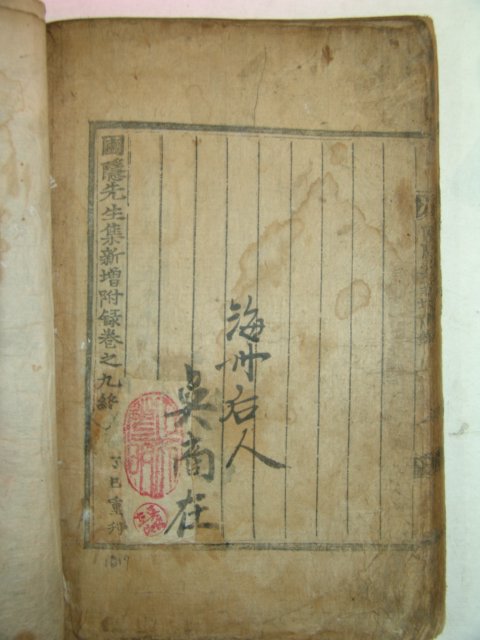 海州后人
吳商在
圃隱先生集新增附錄卷之九終
丁巳重刊